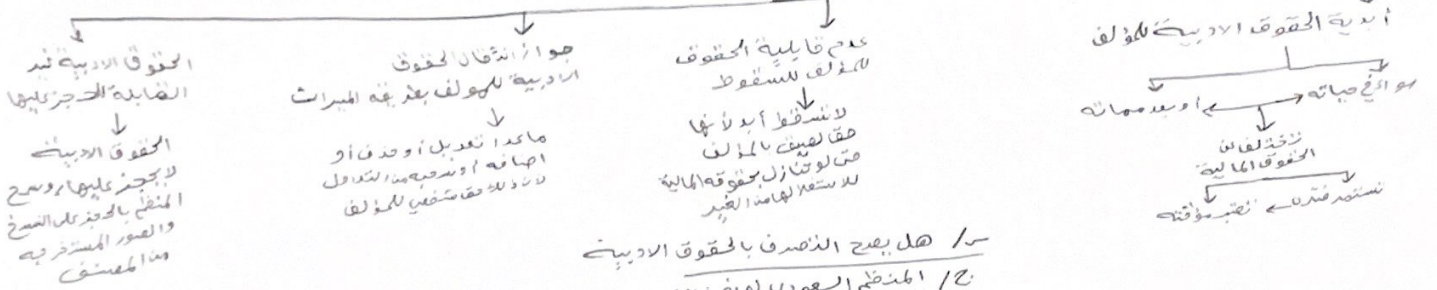 أبدية الحقوق الادبية للمؤلف
سواء في حياته أو بعد مماته
تختلف عن
الحقوق المالية
تستمر فترة تعتبر مؤقته
عدم قابلية الحقوق
للمؤلف للسقوط
لا تسقط أبد لأنها
حق لصيق بالمؤلف
حتى لو تنازل بحقوقه المالية
للاستغلال من الغير
جواز انتقال الحقوق
الادبية للمؤلف بطريقه الميراث
ماعدا تعديل أو حذف أو
اضافه أو سحبه من التداول
حق شخصي للمؤلف
الحقوق الادبية غير
القابلة للحجز عليها
الحقوق الادبية
لا يحجز عليها وسمح
المنظم بالحجز على النسخ
والصور
من المصنف
س/ هل يصح التصرف بالحقوق الادبية
ج/ المنظم السعودي